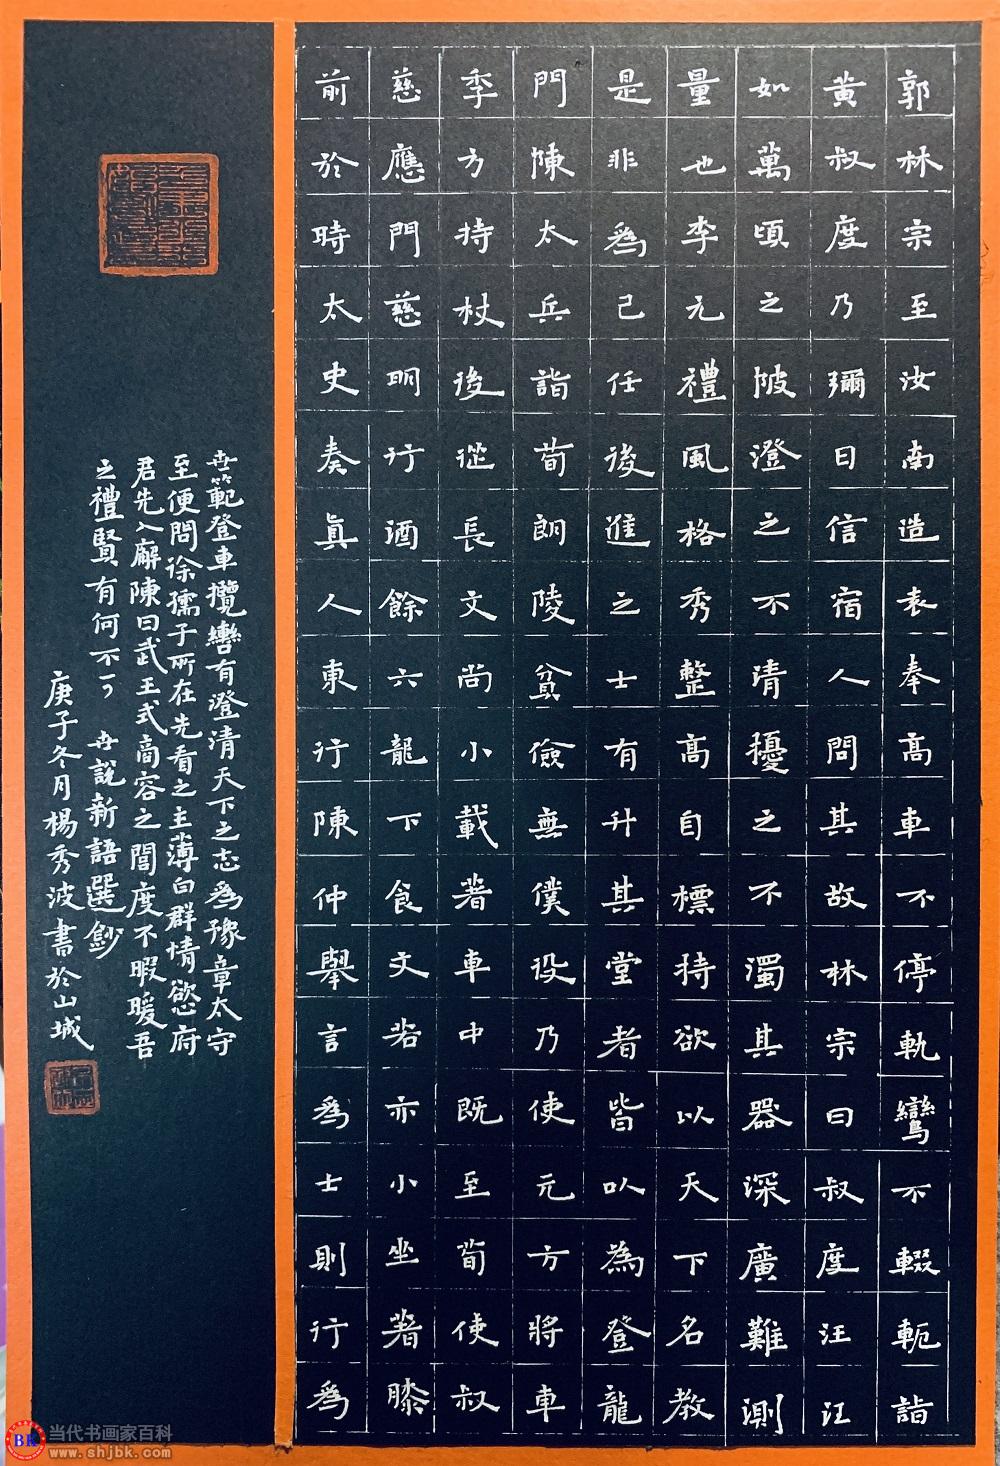 郭林宗至汝南造袁奉高車不停軌鸞不輟軛詣
黃叔度乃彌日信宿人問其故林宗曰叔度汪汪
如萬頃之陂澄之不清擾之不濁其器深廣難測
量也李元禮風格秀整高自標持欲以天下名教
是非為己任後進之士有升其堂者皆以為登龍
門陳太丘詣荀朗陵貧儉無僕役乃使元方將車
季方持杖後從長文尚小載著車中既至荀使叔
慈應門慈明行酒餘六龍下食文若亦小坐著膝
前於時太史奏真人東行陳仲舉言為士則行為
世範登車攬轡有澄清天下之志為豫章太守
至便問徐孺子所在先看之主薄白群情慾府
君先入廨陳曰武王式商容之閭度不暇暖吾
之禮賢有何不可 世說新語選鈔
庚子冬月楊秀波書於山城
当代书画家百科
www.shjbk.com
BK